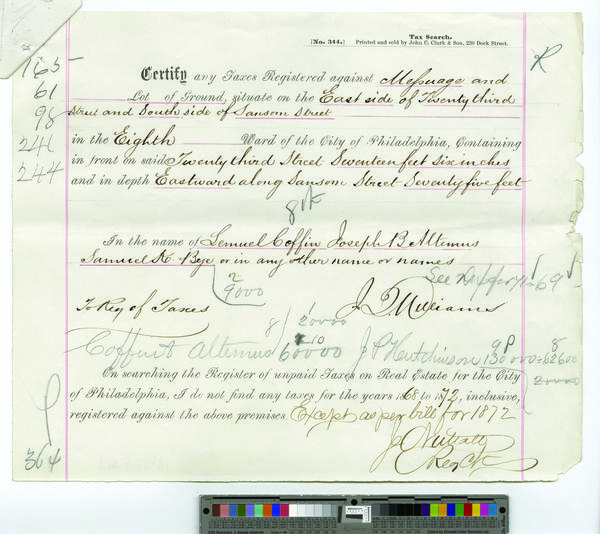 Tax Search.
[No. 344.] Printed and sold by John C. Clark & Son, 230 Dock Street.
165
61
98
241
244
R
Certify any Taxes Registered against Messuage and
Lot of Ground, situate on the East side of Twenty third
Street and South side of Sansom Street
in the Eighth Ward of the City of Philadelphia, Containing
in front on said Twenty third Street Seventeen feet six inches
and in depth Eastward along Sansom Street Seventy five feet
In the name of Lemuel Coffin Joseph B Altemus
Samuel K. Bye or in any other name or names
See 69
2
9000
To Reg of Taxes
J. T. Williams
8 / 1
20000
Coffin & Altemus 60000 J P Hutchinson 130000 62600
20000
On searching the Register of unpaid Taxes on Real Estate for the City
of Philadelphia, I do not find any taxes for the years 1868 to 1872, inclusive,
registered against the above premises. Except as per bill for 1872
Reg Ck
364